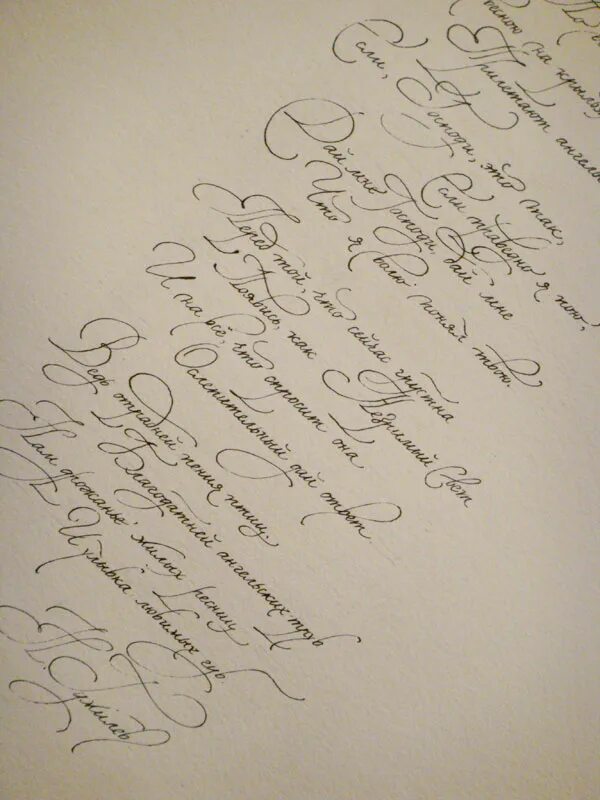 По
на крылах
Прилетают ангелы
Если, Господи, это так,
Если праведно я пою,
Дай мне Господи, дай мне
Что я волю понял твою.
Перед той, что сейчас грустна
Появись, как Незримый Свет
И на всё, что спросит она
Ослепительный дай ответ.
Ведь отрадней пения птиц.
Благодатней ангельских труб
Нам дрожанье милых ресниц
И улыбка любимых губ.
Н. Гумилёв